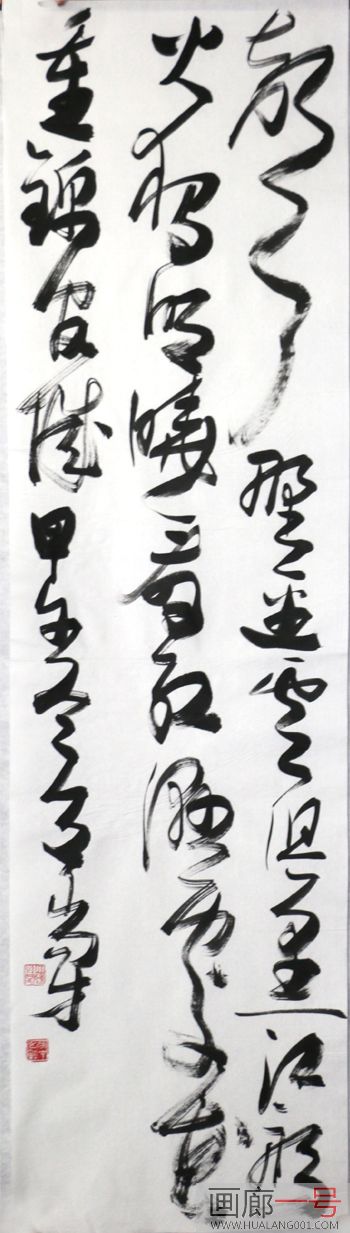 野逕雲俱黑江船
火獨明曉看紅濕處花
重錦官城甲午冬
画廊一号
WWW.HUALANG001.COM